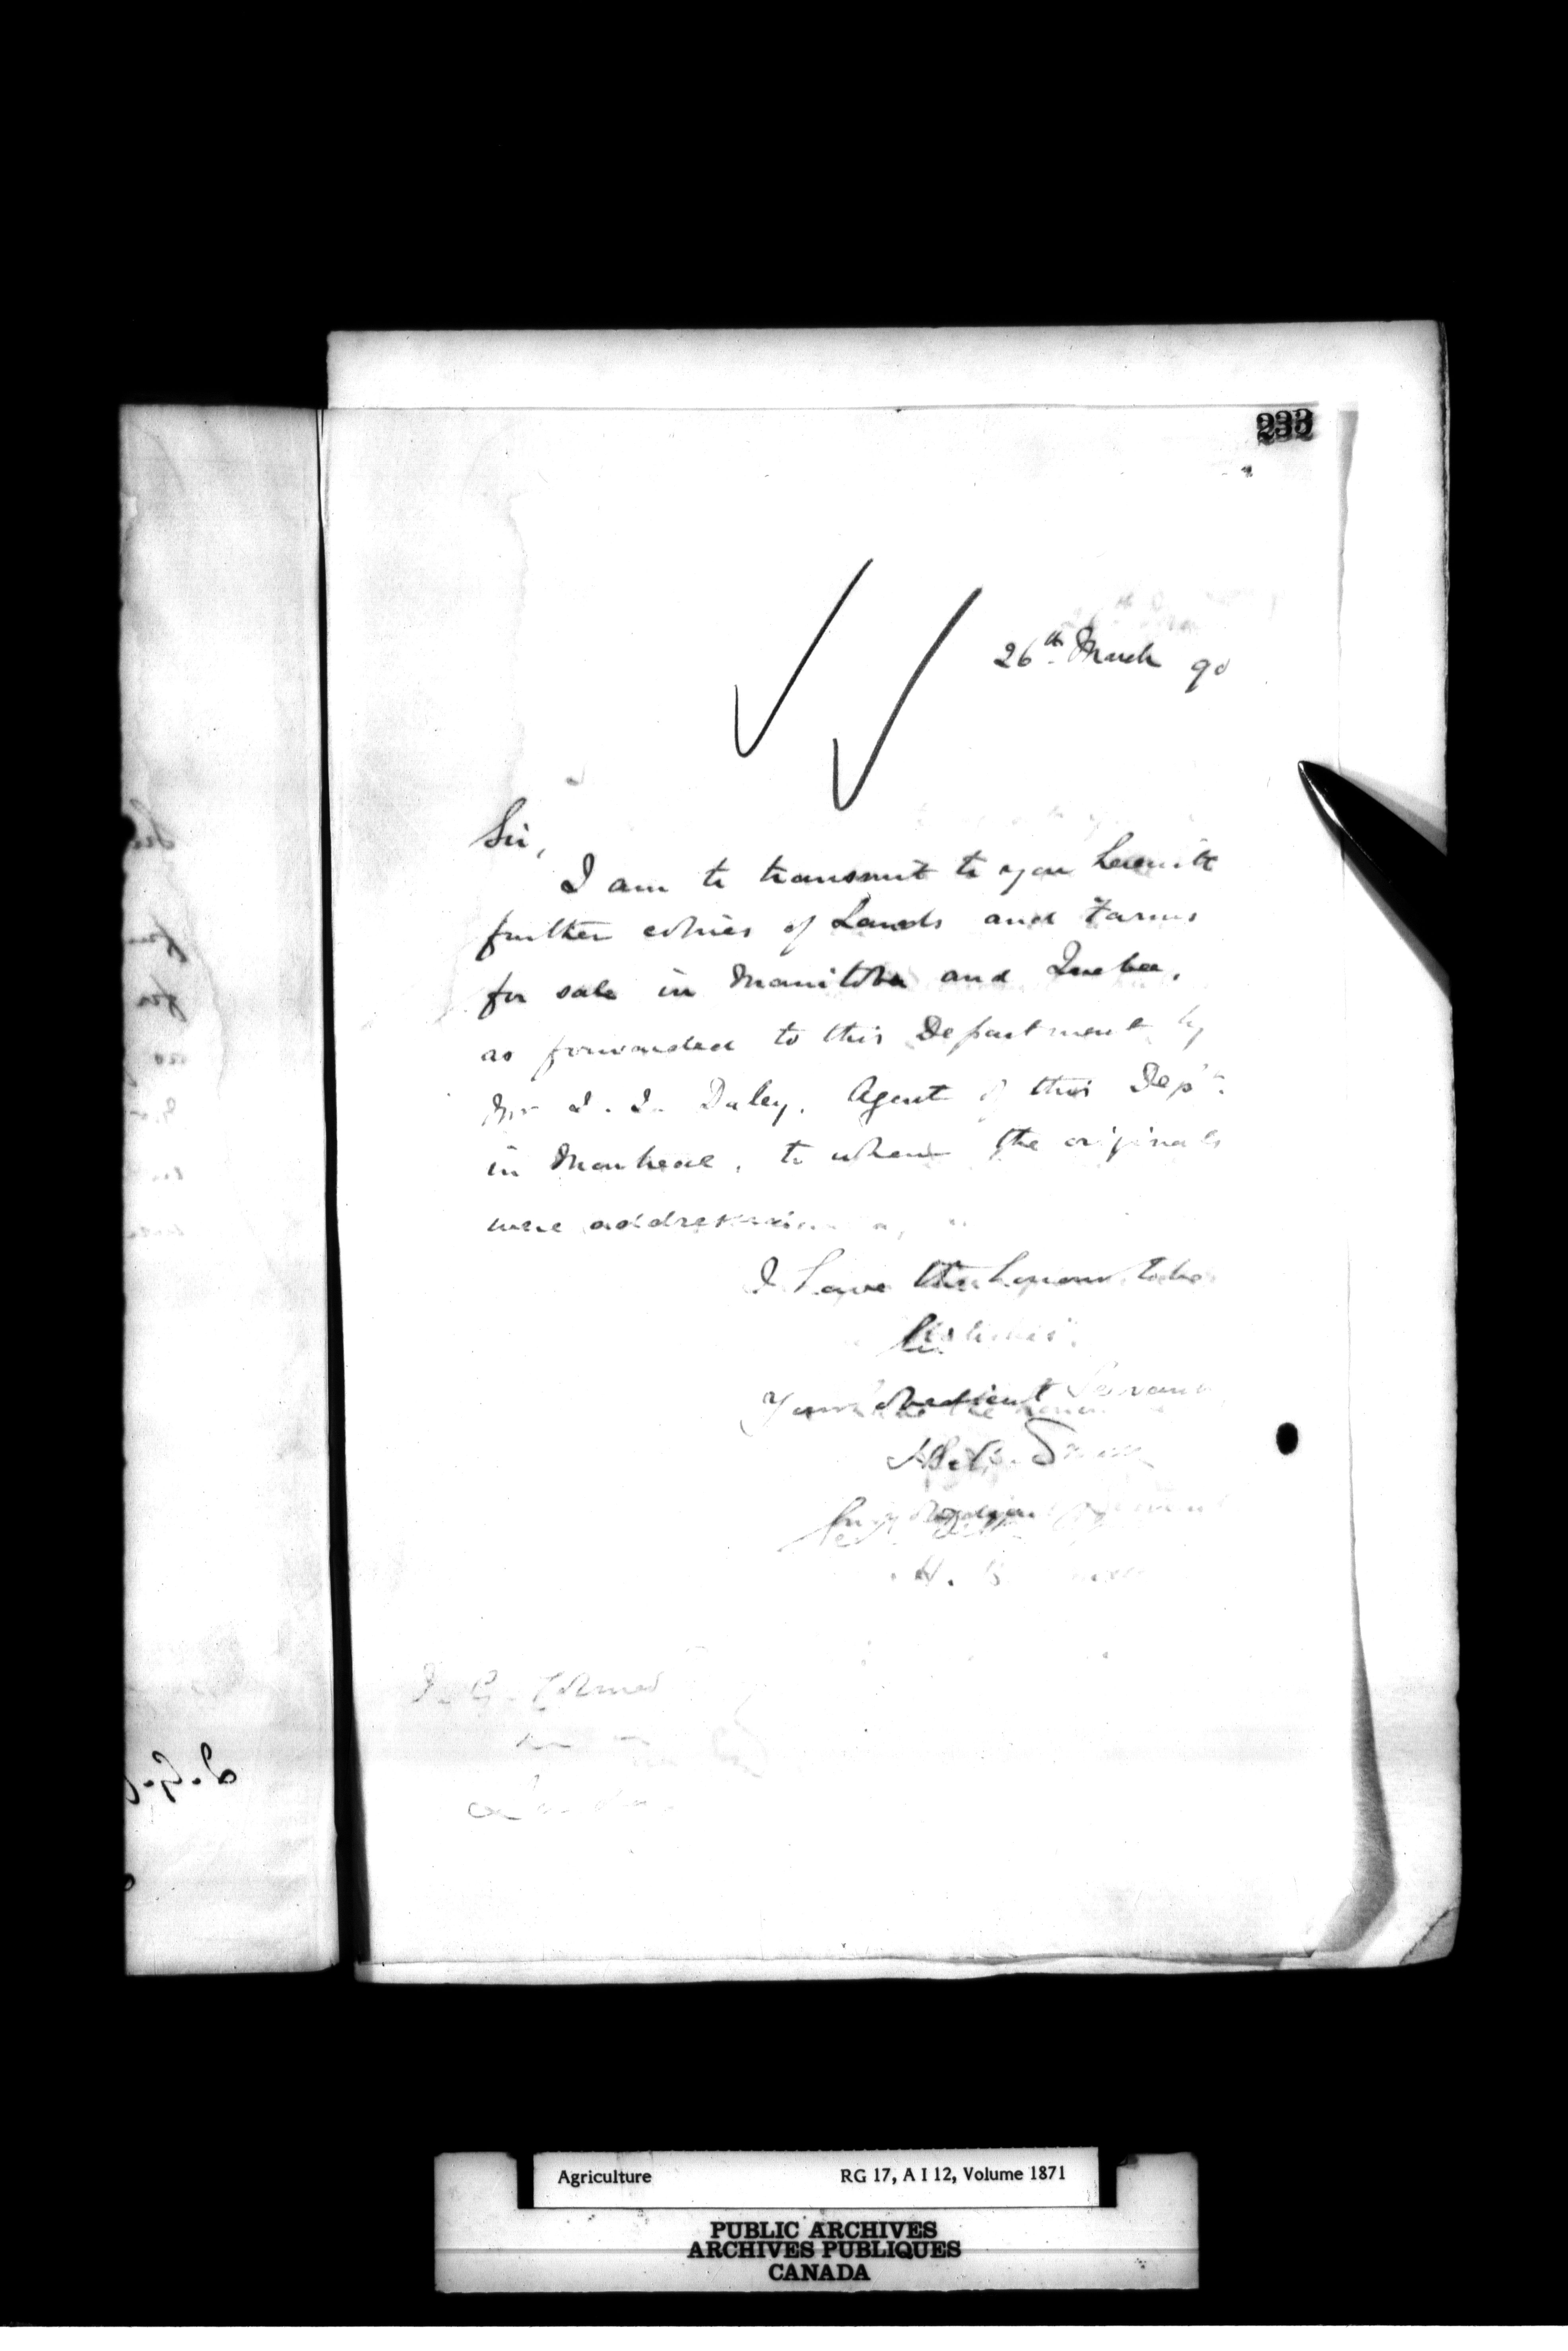 233
26th March 90
Sir,
I am to transmit to you herewith
further copies of Lands and Farms
for sale in Manitoba and Quebec,
as forwarded to this Department by
Mr J. J. Daley, Agent of this Dept.
in Montreal, to whom the originals
were addressed
I have the honour to be
Sir
Your obedient Servant
H. B. Small
J. G. Colmer
London
Agriculture RG 17, A I 12, Volume 1871
PUBLIC ARCHIVES
ARCHIVES PUBLIQUES
CANADA